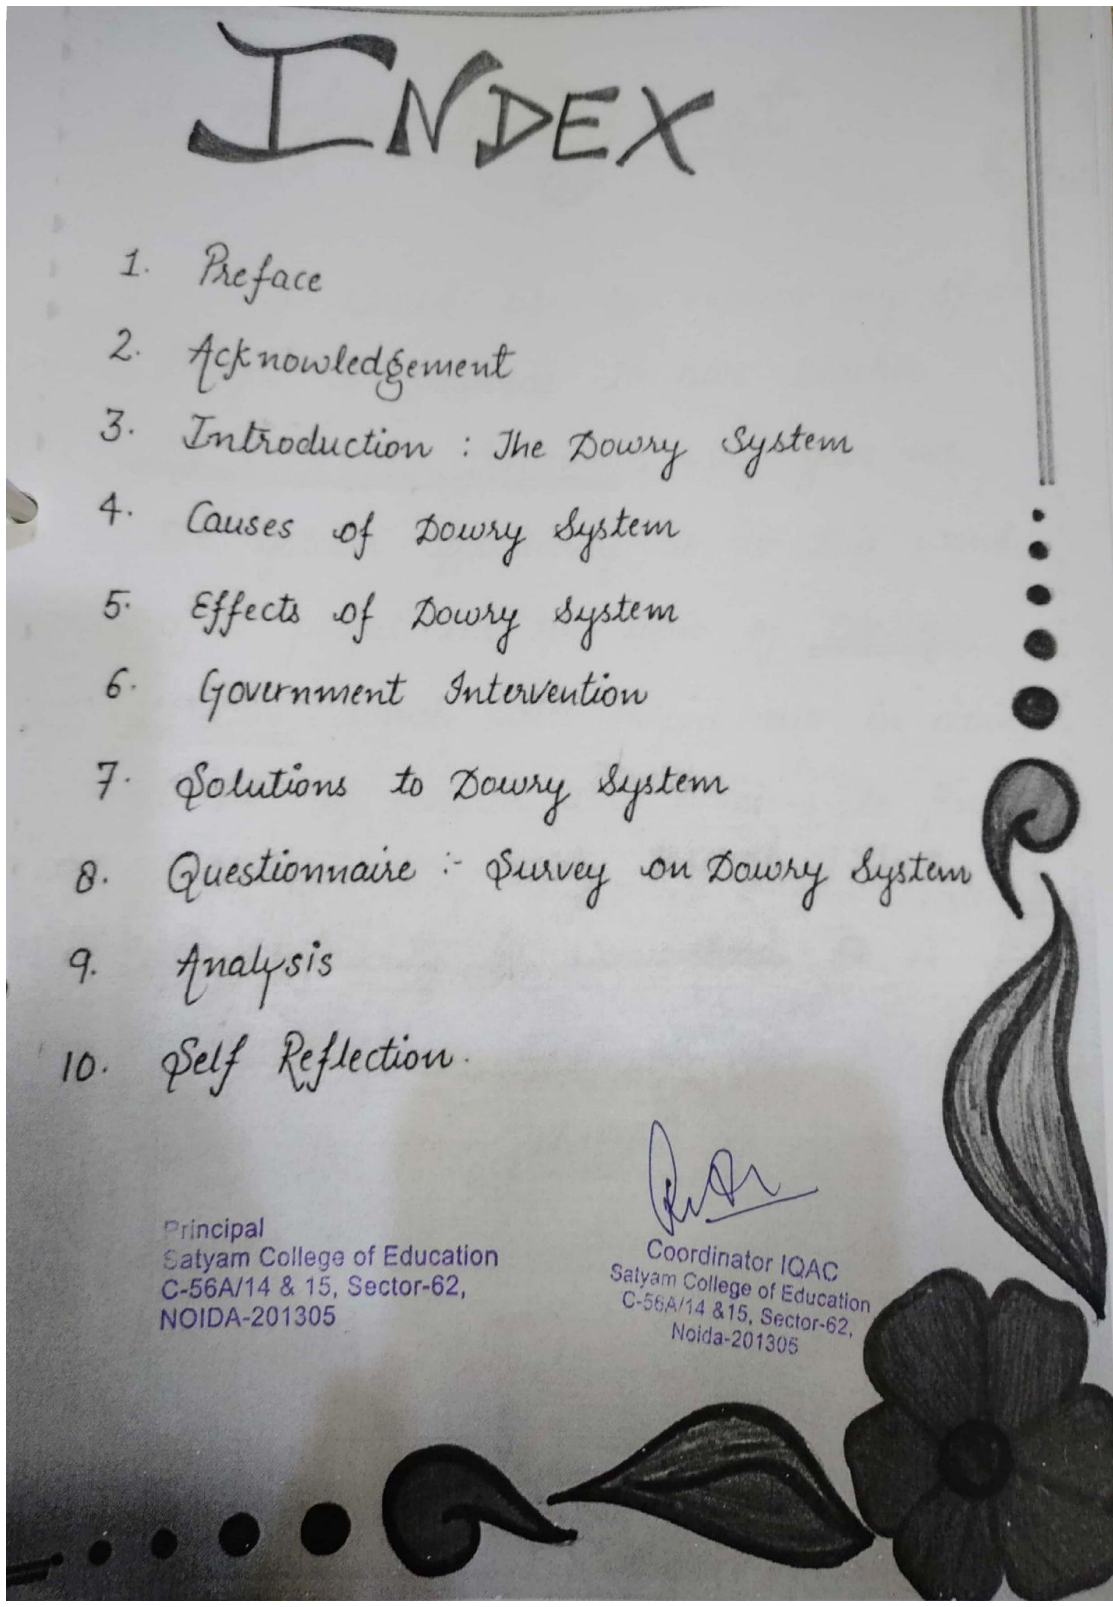 INDEX
1. Preface
2. Acknowledgement
3. Introduction : The Dowry System
4. Causes of Dowry System
5. Effects of Dowry System
6. Government Intervention
7. Solutions to Dowry System
8. Questionnaire :- Survey on Dowry System
9. Analysis
10. Self Reflection.
Principal
Satyam College of Education
C-56A/14 & 15, Sector-62,
NOIDA-201305
Coordinator IQAC
Satyam College of Education
C-56A/14 &15, Sector-62,
Noida-201305